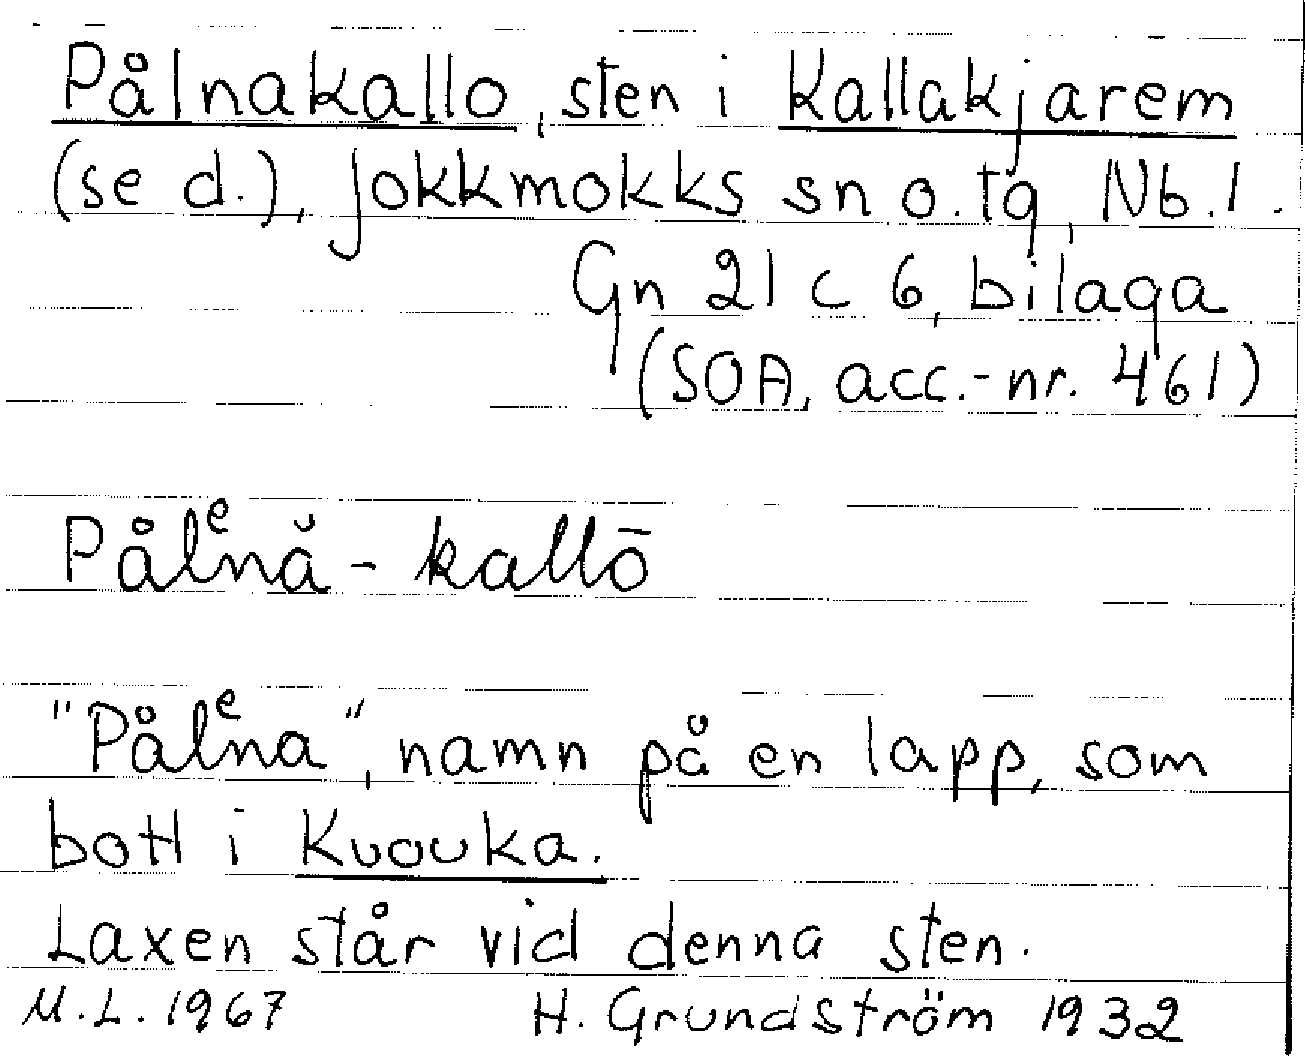 Pålnakallo, sten i Kallakjarem
(se d.), Jokkmokks sn o. tg, Nb. l.
Gn 21 c 6, bilaga
(SOA, acc.-nr. 461)
Pålᵉnă-kallō
"Pålᵉna", namn på en lapp, som
bott i Kuouka.
Laxen står vid denna sten.
M.L. 1967 H. Grundström 1932